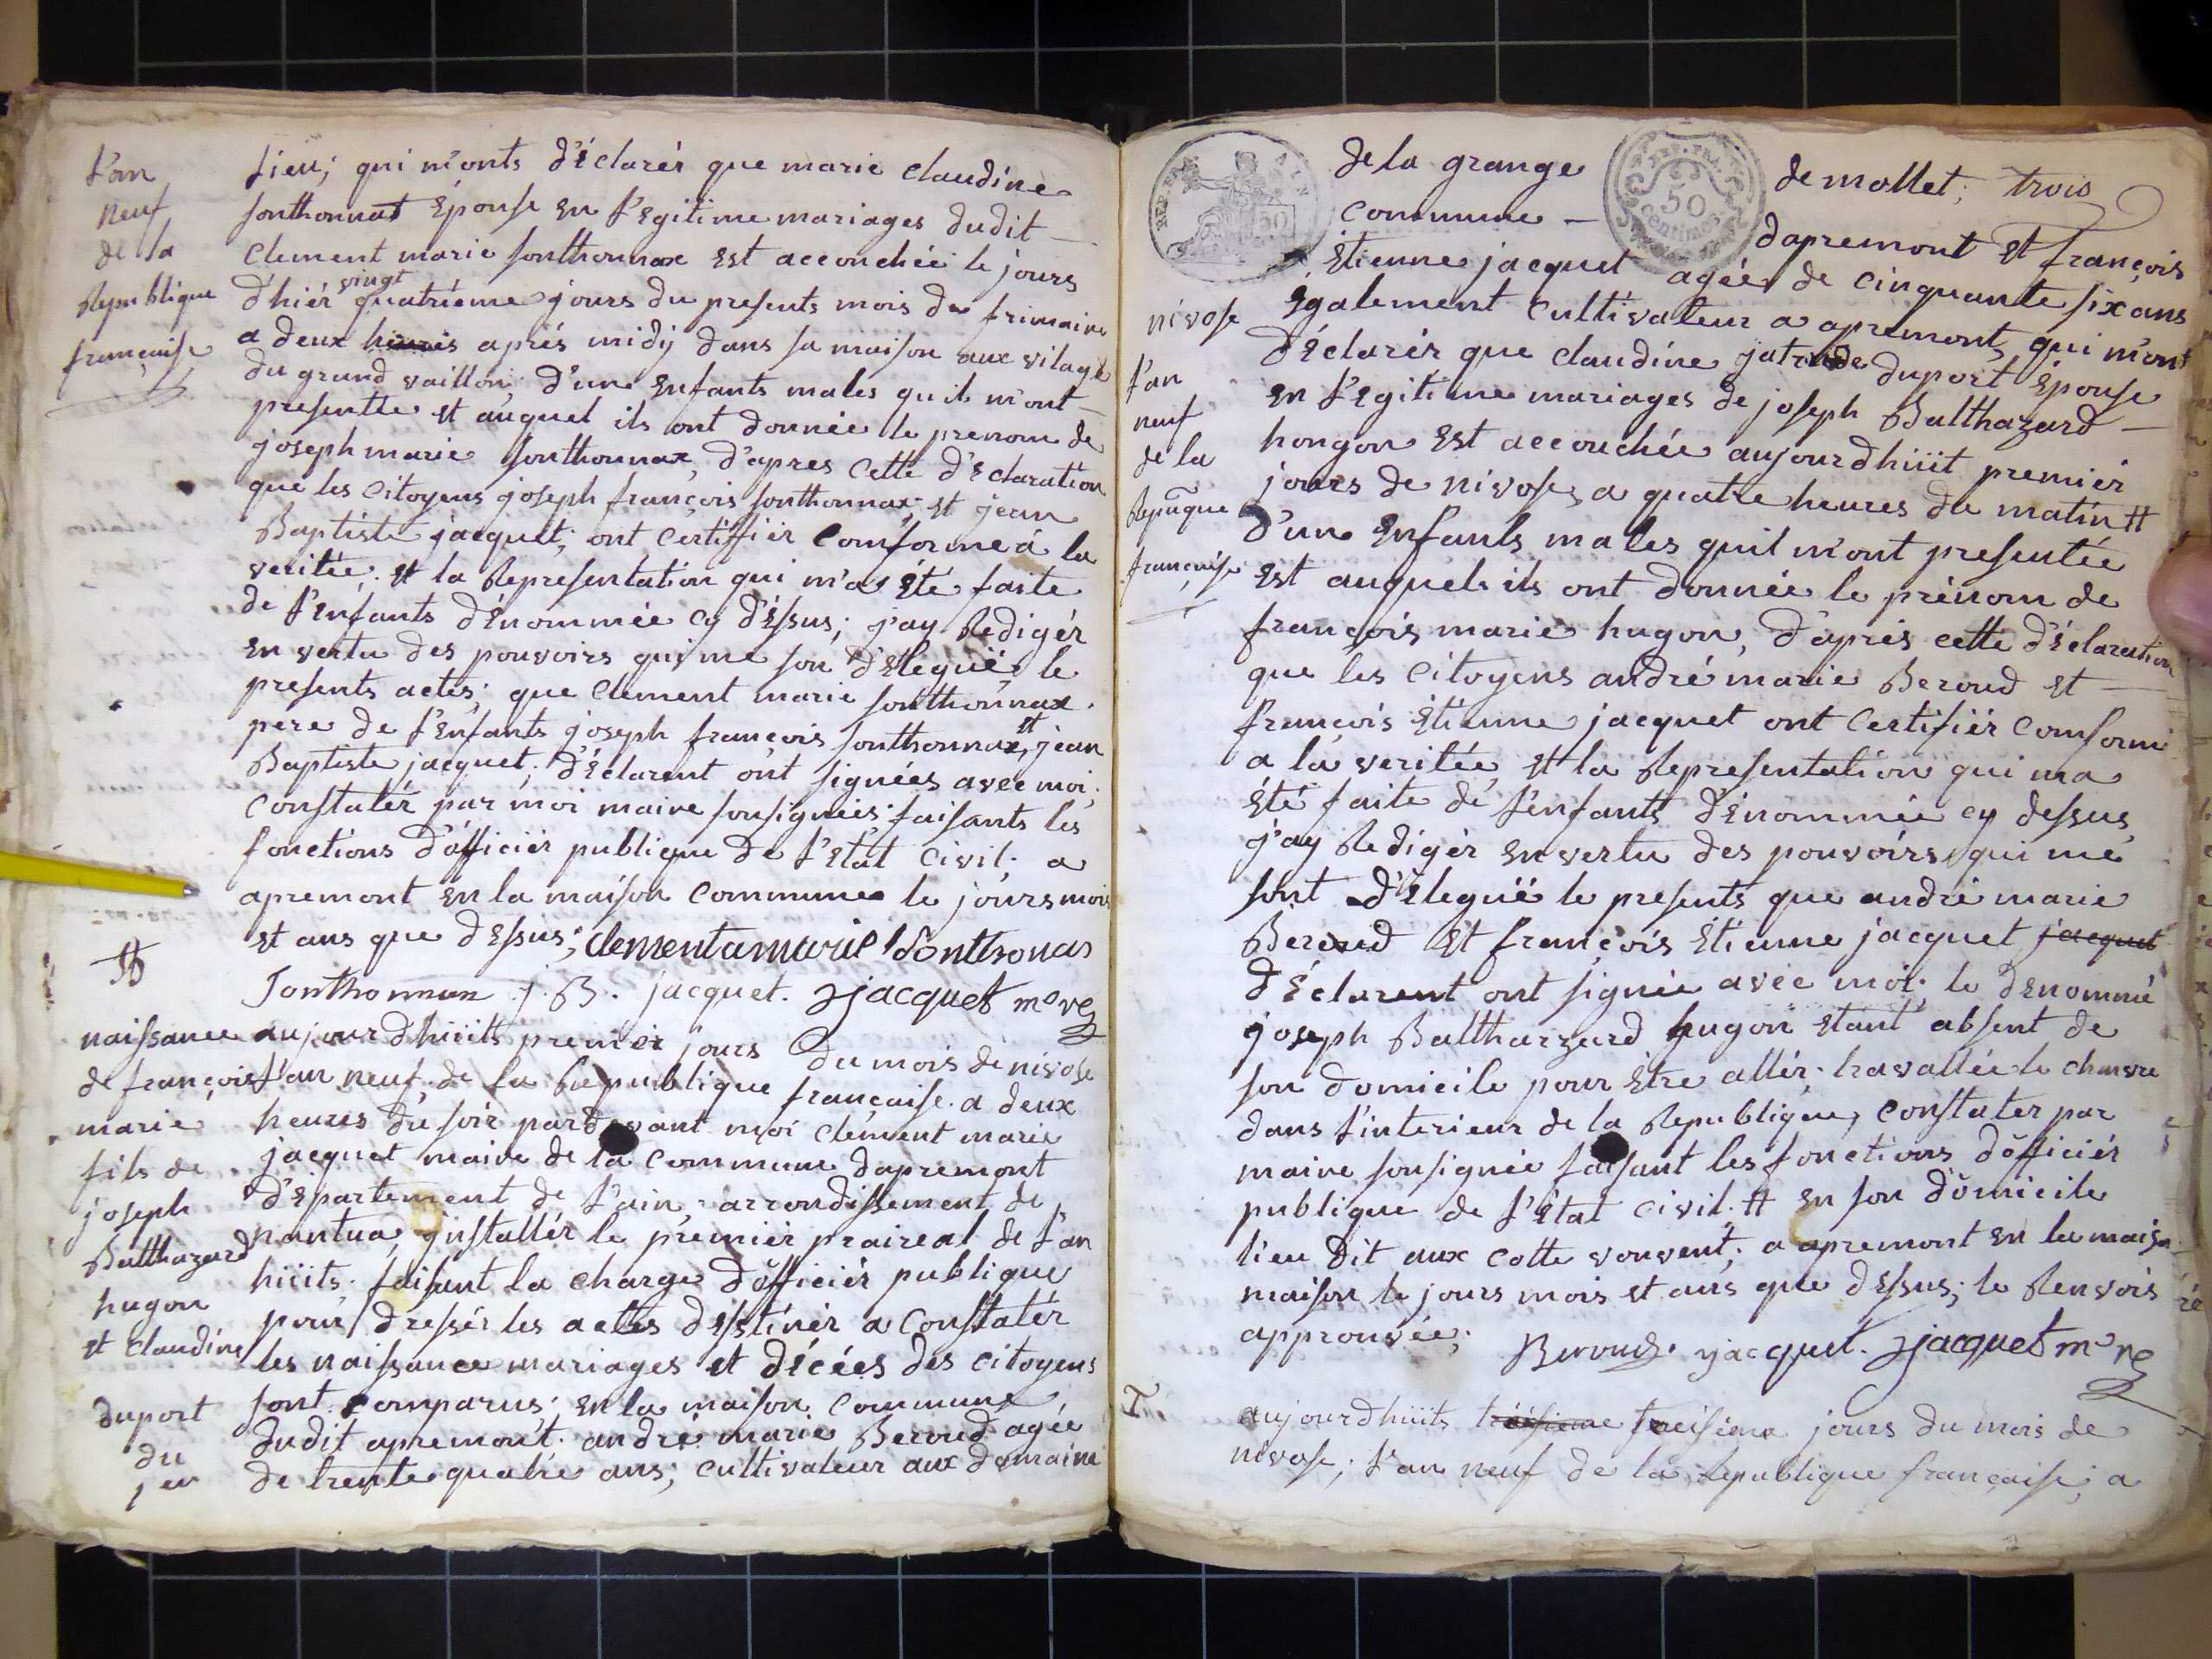 l'an
neuf
de la
Republique
francaise
lieu; qui m'onts d'éclarér que marie claudine
sonthonnax Epouse en l'Egitime mariages dudit
Clement marie sonthonnax Est accouchéé le jours
d'hiér vingt quatriéme jours du presents mois de frimaire
a deux heures aprés midÿ dans sa maison aux vilage
du grand vaillon; d'une Enfants males qu'ils m'ont
presentte et auquel ils ont donnéé le prenom de
joseph marie sonthonnax, d'apres cette d'Eclaration
que les Citoyens joseph françois sonthonnax, et jean
Baptiste jacquet; ont Certiffiér Comforme á la
veritée. et la Representation qui m'a Eté faite
de l'Enfants dénommée cy d'Essus; j'ay Redigér
en vertu des pouvoirs qui me son d'Eleguéé le
presents actes; que Clement marie sonthonnax
pere de l'Enfants joseph francois sonthonnax, et jean
Baptiste jacquet; d'Eclarent ont signées avec moi;
Constatér par moi maire sousignéés faisants les
fonctions d'officiér publique de l'Etat Civil; a
apremont en la maison Commune le jours mois
et ans que dessus; clementamarie sonttsonas
Sonthonnax j. B. jacquet. jjacquet mare
naissance
de françois
marie
fils de
joseph
Balthazard
hugon
et Claudine
duport
du
1er
aujourdhüits premiér jours du mois de nivose
l'an neuf de la Republique francaise a deux
heures du soir pardevant moi clément marie
jacquet maire de la Commune dapremont
d'Epartement de l'ain, arrondissement de
nantua, jnstallér le premiér praireal de l'an
hüits; faisant la charge d'officiér publique
pour dressér les actes destinér a Constatér
les naissance mariages et décées des citoyens
sont comparus; en la maison Commune
dudit apremont. andré marie Beroud agée
de trente quatre ans; cultivateur aux domaine
de la grange de mollet; trois
Commune dapremont et françois
Étienne jacquet agée de cinquante six ans
Egalement Cultivateur a apremont, qui m'ont
nivose
l'an
neuf
de la
Republique
francaise
d'éclarér que claudine duport Épouse
en l'Egitime mariages de joseph Balthazard
hongon Est accouchéé aujourdhüit premiér
jours de nivose a quatre heures du matin #
d'une Enfants males quil m'ont presentée
Est auquels ils ont donnéé le prénom de
françois marie hugon, d'aprés cette d'éclaration
que les Citoyens andré marie Beroud et
françois Etienne jacquet ont Certifiér comforme
a la veritée et la Representation qui ma
Été faite de l'enfants dénommée cy dessus
j'ay Redigér en vertu des pouvoirs qui me
sont d'Eleguéé le presents que andré marie
Beroud et françois Etienne jacquet jacquet
d'Eclarent ont signéé avec moi. le dénommé
joseph Baltharzard hugon étant absent de
son domicile pour être allér travallée le chanvre
dans l'interieur de la Republique, Constater par
maire sousignée faisant les fonctions d'officiér
publique de l'État civil. # en son domicile
lieu dit aux cotte vouvent; a apremont en la maison
maison le jours mois et ans que dessus; le Renvois
approuvée; Beroud. yjacquet. jjacquet mare
aujourdhüits troisieme treisieme jours du mois de
nivose; l'an neuf de la Republique française; a
REP. FRA.
50
centimes